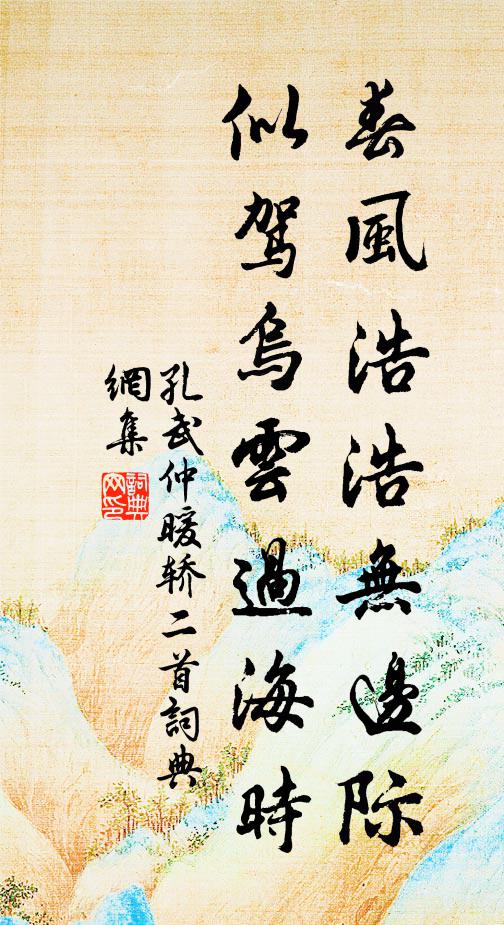 春風浩浩無邊际
似驾烏雲過海時
孔武仲暖轿二首詞典
網集
詞典
网印